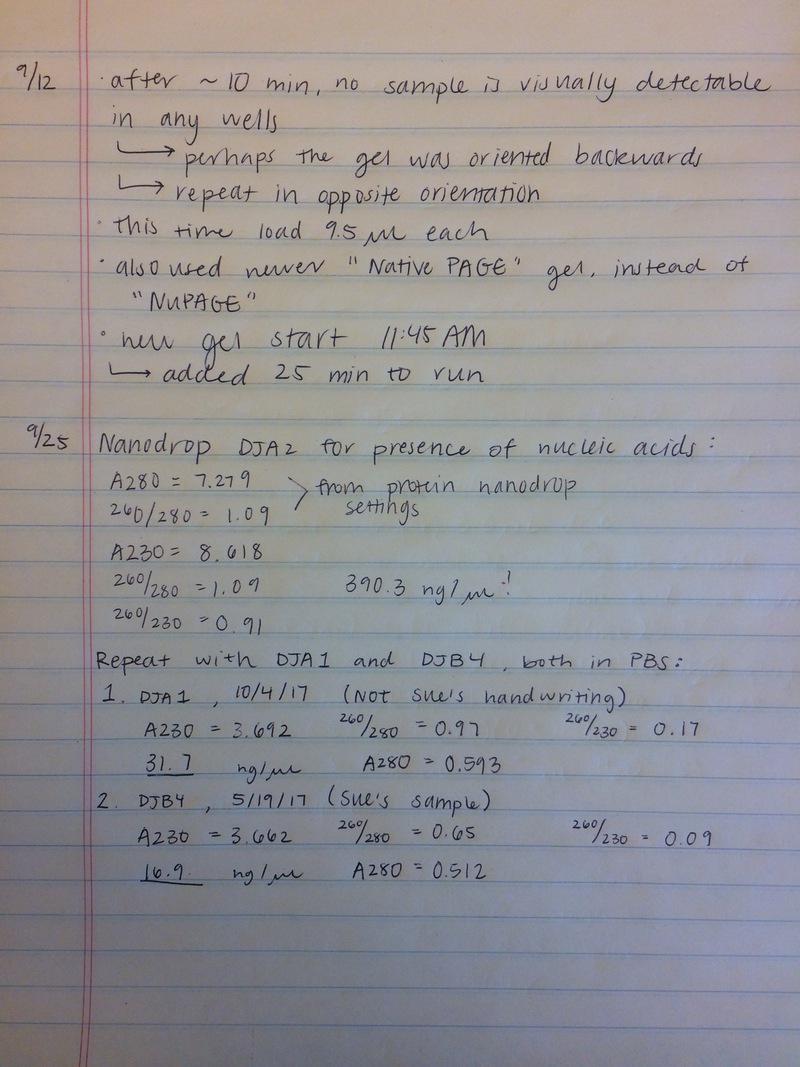 9/12 · after ~ 10 min, no sample is visually detectable
in any wells
↳ perhaps the gel was oriented backwards
↳ repeat in opposite orientation
· this time load 9.5 μl each
· also used newer "Native PAGE" gel, instead of
"NuPAGE"
· new gel start 11:45 AM
↳ added 25 min to run
9/25 Nanodrop DJA2 for presence of nucleic acids:
A280 = 7.279 > from protein nanodrop
260/280 = 1.09 settings
A230 = 8.618
260/280 = 1.09 390.3 ng/μl!
260/230 = 0.91
Repeat with DJA1 and DJB4, both in PBS:
1. DJA1, 10/4/17 (Not Sue's handwriting)
A230 = 3.692 260/280 = 0.97 260/230 = 0.17
31.7 ng/μl A280 = 0.593
2. DJB4, 5/19/17 (Sue's sample)
A230 = 3.662 260/280 = 0.65 260/230 = 0.09
16.9 ng/μl A280 = 0.512